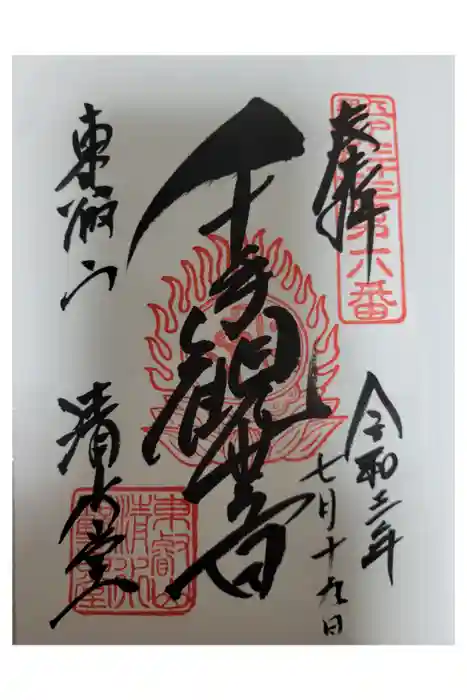 奉拝
令和三年
七月十九日
千手観世音
東叡山
清水堂
第六番
東叡山
清水